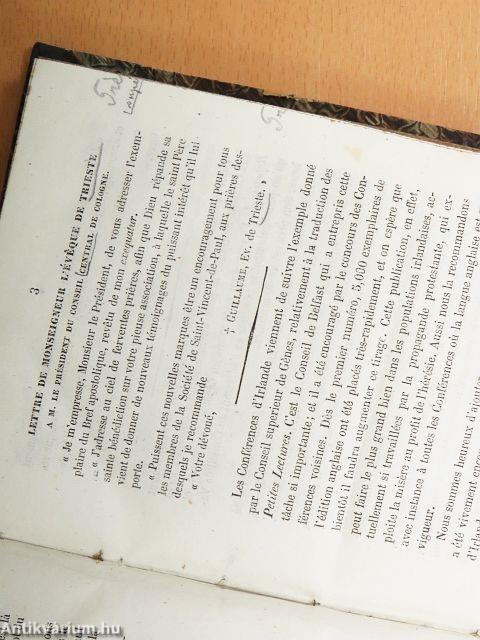 3
LETTRE DE MONSEIGNEUR L'ÉVÊQUE DE TRIESTE
A M. LE PRÉSIDENT DU CONSEIL CENTRAL DE COLOGNE.
« Je m'empresse, Monsieur le Président, de vous adresser l'exem-
plaire du Bref apostolique, revêtu de mon exequatur.
« J'adresse au ciel de ferventes prières, afin que Dieu répande sa
sainte bénédiction sur votre pieuse association, à laquelle le saint Père
vient de donner de nouveaux témoignages du puissant intérêt qu'il lui
porte.
« Puissent ces nouvelles marques être un encouragement pour tous
les membres de la Société de Saint-Vincent-de-Paul, aux prières des-
quels je me recommande
« Votre dévoué,
† GUILLAUME, Ev. de Trieste. »
Les Conférences d'Irlande viennent de suivre l'exemple donné
par le Conseil superieur de Gènes, relativement à la traduction des
Petites Lectures. C'est le Conseil de Belfast qui a entrepris cette
tâche si importante, et il a été encouragé par le concours des Con-
férences voisines. Dès le premier numéro, 5,000 exemplaires de
l'édition anglaise ont été placés très-rapidement, et on espère que
bientôt il faudra augmenter ce tirage. Cette publication, en effet,
peut faire le plus grand bien dans les populations irlandaises, ac-
tuellement si travaillées par la propagande protestante, qui ex-
ploite la misère au profit de l'hérésie. Aussi nous la recommandons
avec instance à toutes les Conférences où la langue anglaise est
vigueur.
Nous sommes heureux d'ajouter
a été vivement
d'Irlande
Antikvárium.hu